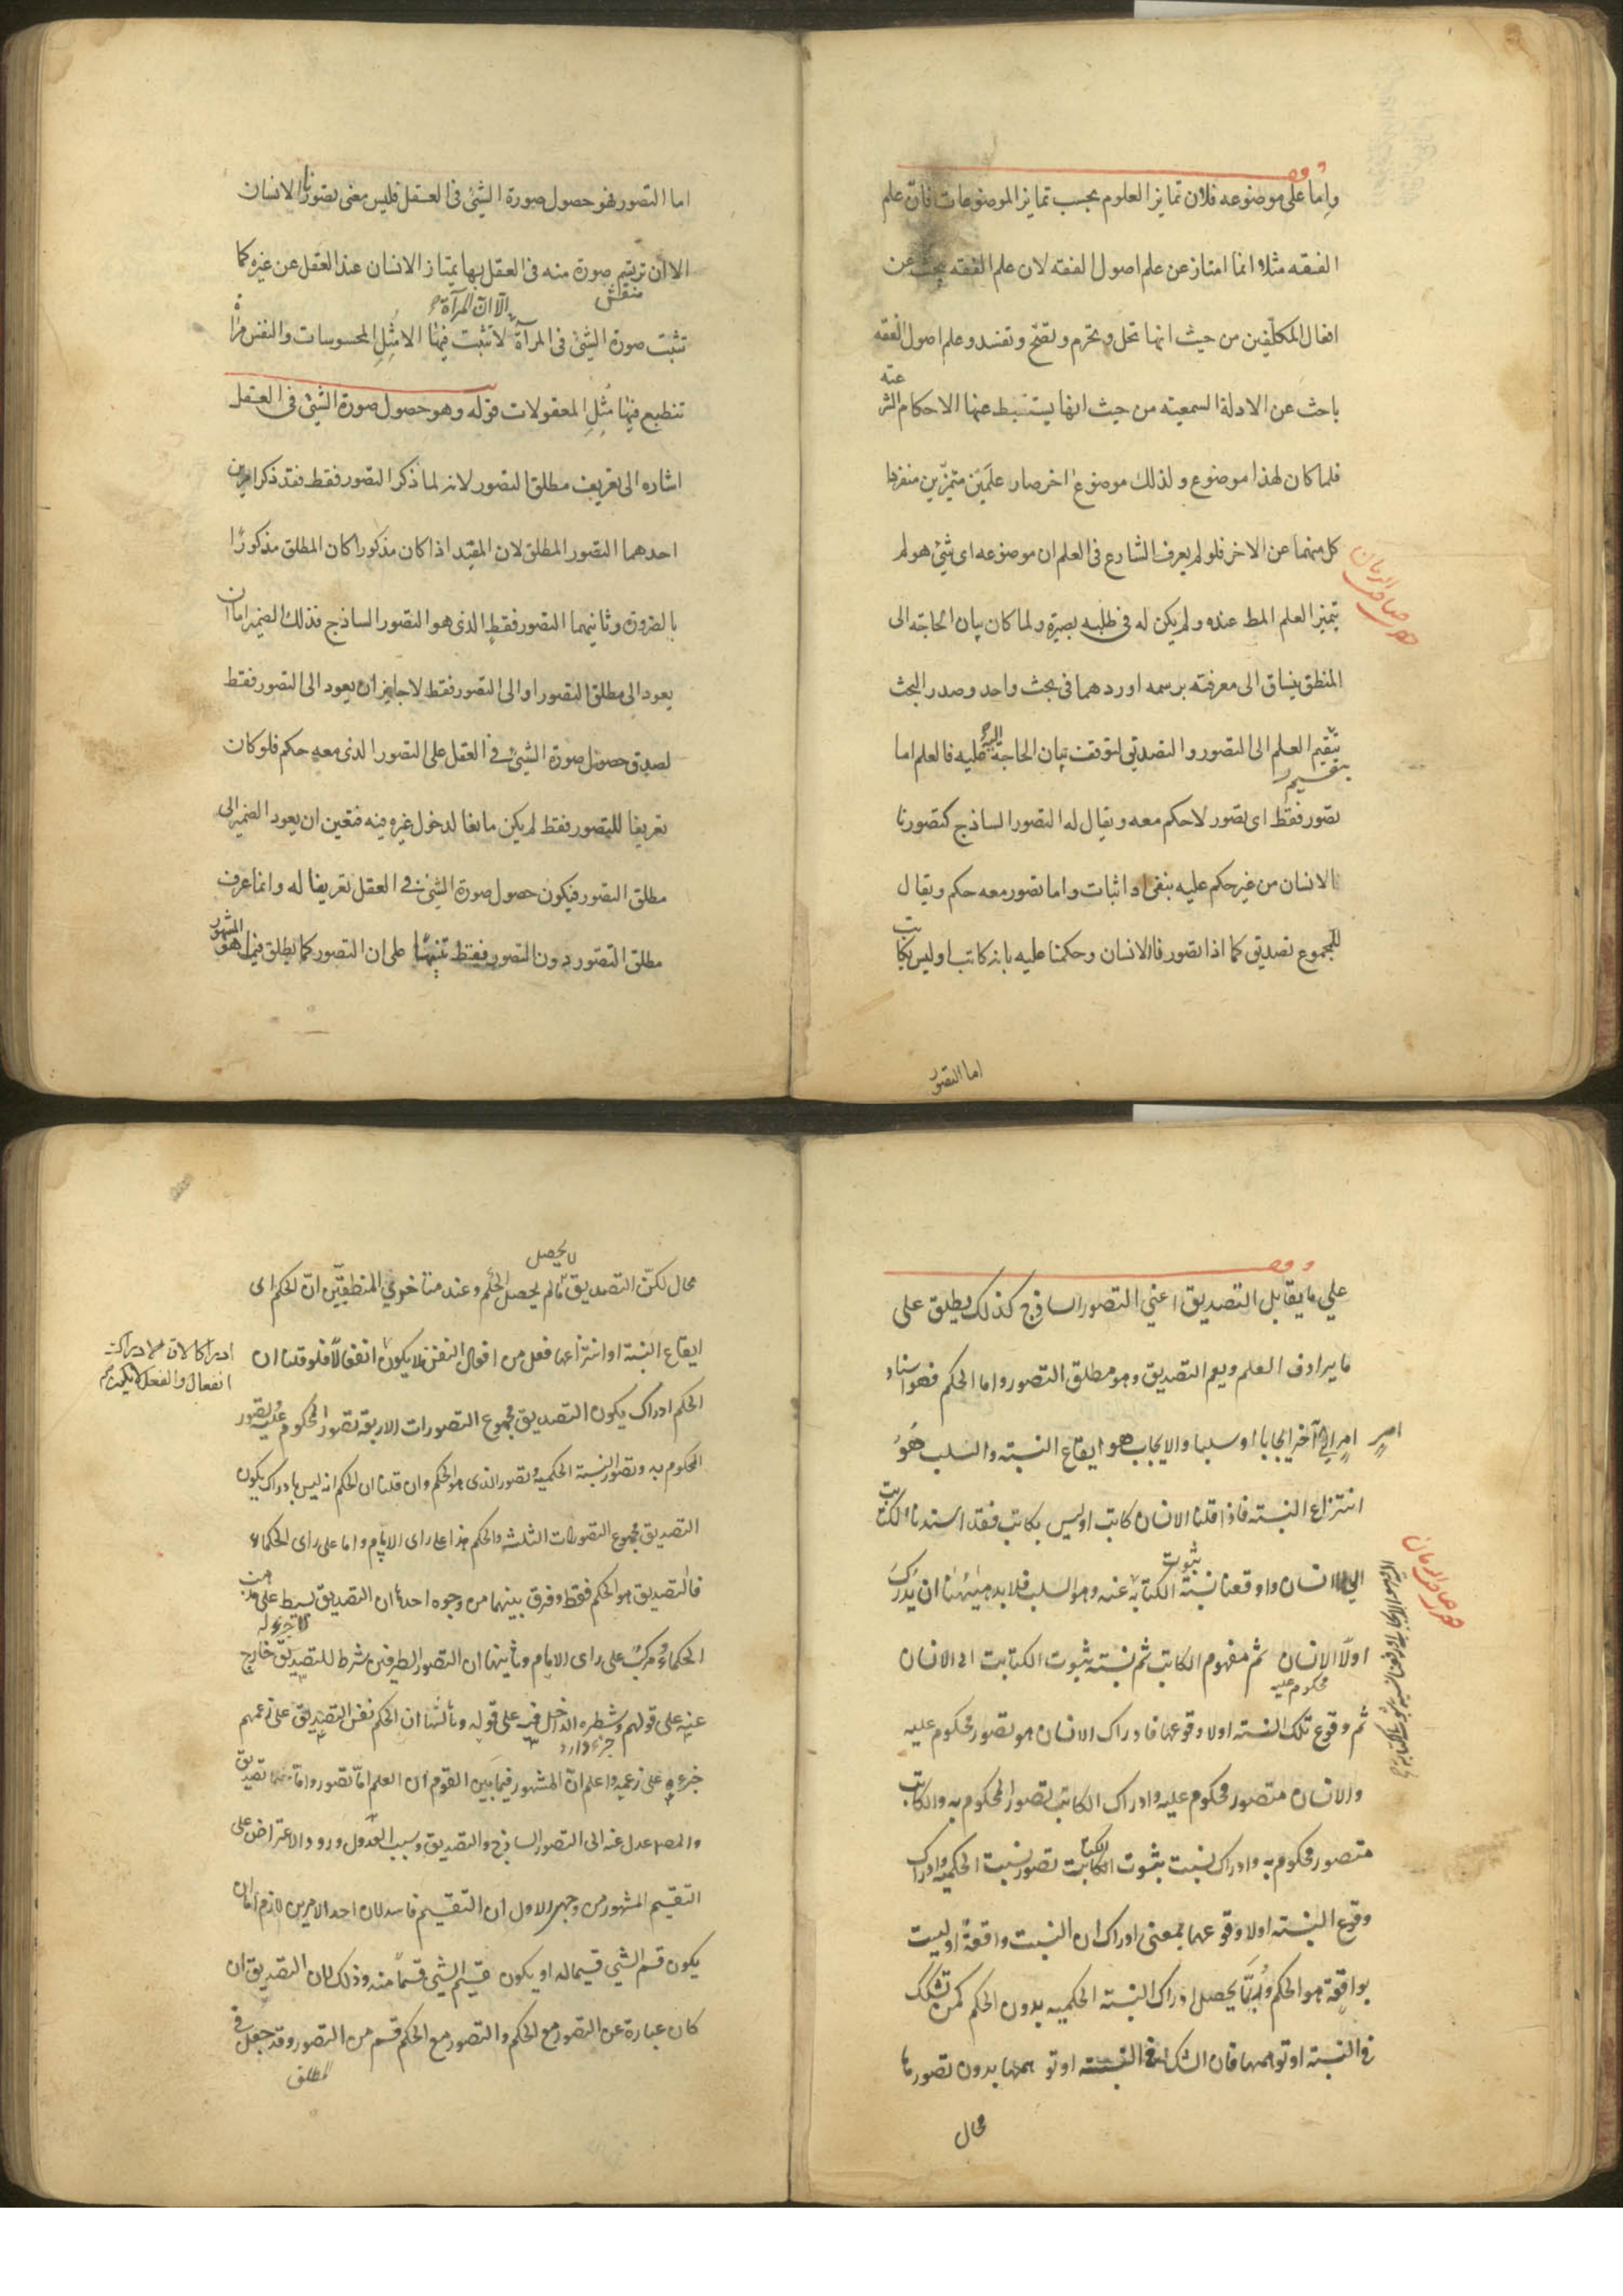 واما على موضوعه فلان تمايز العلوم بحسب تمايز الموضوعات فان علم
الفقه مثلا انما امتاز عن علم اصول الفقه لان علم الفقه يبحث عن
افعال المكلّفين من حيث انها تحل وتحرم وتصّح وتفسد وعلم اصول الفقه
باحث عن الادلة السمعيته من حيث انها يستنبط عنها الاحكام الشر
عته
فلما كان لهذا موضوع ولذلك موضوع اخر صار علمَين متميّزين منفردا
كل منهما عن الاخر فلو لم يعرف الشارع فى العلم ان موضوعه اى شئ هو لم
يتميز العلم المط عنده ولم يكن له فى طلبه بصيرة ولما كان بيان الحاجة الى
المنطق ينساق الى معرفته برسمه اوردهما فى بحث واحد وصدر البحث
بتقسيم العلم الى التصور والتصديق لتوقف بيان الحاجة اليه عليه فالعلم اما
بتقسيم
تصور فقط اى تصور لا حكم معه ويقال له التصور الساذج كتصورنا
الانسان من غير حكم عليه بنفى او اثبات واما تصور معه حكم ويقال
للمجموع تصديق كما اذا تصورنا الانسان وحكمنا عليه بانه كاتب او ليس بكاتب
اما التصور
اما التصور فهو حصول صورة الشئ فى العقل فليس معنى تصورنا الانسان
الا ان ترتسم صورة منه فى العقل بها يمتاز الانسان عند العقل عن غيره كما
منقش
الّا انّ المرآة
تثبت صورة الشئ فى المرآة لا تثبت فيها الا مُثِل المحسوسات والنفس مراة
تنطبع فيها مُثِل المعقولات قوله وهو حصول صورة الشئ فى العقل
اشاره الى تعريف مطلق التصور لانه لما ذكر التصور فقط فقد ذكر امرين
احدهما التصور المطلق لان المقيّد اذا كان مذكورا كان المطلق مذكورًا
بالضرورة وثانيهما التصور فقط الذى هو التصور الساذج فذلك الضمير اما ان
يعود الى مطلق التصور او الى التصور فقط لا جايز ان يعود الى التصور فقط
لصدق حصول صورة الشئ فى العقل على التصور الذى معه حكم فلو كان
تعريفا للتصور فقط لم يكن مانعا لدخول غيره فيه فتعين ان يعود الضمير الى
مطلق التصور فيكون حصول صورة الشئ فى العقل تعريفا له وانما عرف
مطلق التصور دون التصور فقط تنبيهًا على ان التصور كما يطلق فيما هو المشهور
علي ما يقابل التصديق اعني التصور الساذج كذلك يطلق على
ما يرادف العلم ويعم التصديق وهو مطلق التصور واما الحكم فهو اسناد
امرٍ الى آخر ايجابا او سلبا والايجاب هو ايقاع النسبته والسلب هُوَ
امرٍ
انتزاع النسبته فاذا قلنا الانسان كاتب او ليس بكاتب فقد اسندنا الكاتب
الى الانسان واوقعنا نسبة ثبوت الكتابة عنه وهو السلب فلابد هيٰهنا ان يُدرَكَ
اولًا الانسان ثم مفهوم الكاتب ثم نسبته ثبوت الكتابت الى الانسان
محكوم عليه
ثم وقوع تلك النسبته اولا وقوعها فادراك الانسان هو تصور محكوم عليه
والانسان متصور محكوم عليه وادراك الكاتب تصور المحكوم به والكاتب
متصور محكوم به وادراك نسبت ثبوت الكتابت تصور نسبت الحكميه وادراك
وقوع النسبته اولا وقوعها بمعنى ادراك ان النسبت واقعة او ليست
بواقِعة هو الحكم ورُبَّما يحصل ادراك النسبته الحكميه بدون الحكم كمن تشكك
فى النسبته او توهمها فان الشك فى النسبته او توهمها بدون تصورها
محال
محال لكنّ التصديق مالم يحصل الحكم وعند متاخري المنطقيّين انّ الحكم اى
لا يحصل
ايقاع النسبته او انتزاعها فعل من افعال النفس فلا يكون انفعالًا فلو قلنا ان
الحكم ادراك يكون التصديق مجموع التصورات الاربعة تصور المحكوم عليه وتصور
المحكوم به وتصور النسبته الحكميه وتصور الذى هو الحكم وان قلنا ان الحكم انه ليس بادراك يكون
التصديق مجموع التصورات الثلثه والحكم هذا على راى الامام واما على راى الحكماء
فالتصديق هو الحكم فقط وفرق بينهما من وجوه احدها ان التصديق بسيط على مذهب
الحكماءِ ومركبٌ على راى الامام وثانيها ان التصور الطرفين شرط للتصديق خارج
عنه على قولهم وشطره الداخل فيه على قوله وثالثها ان الحكم نفس التصديق على زعمهم
جزءه على زعمه واعلم انّ المشهور فيما بين القوم ان العلم امّا تصور وامّا تصديق
والمصـ عدل عنه الى التصور الساذج والتصديق وسبب العدول ورود الاعتراض على
التقسيم المشهور من وجهين الاول ان التقسيم فاسد لان احد الامرين لازم اما ان
يكون قسم الشئ قسيما له او يكون قسيم الشئ قسماً منه وذلك لان التصديق ان
كان عبارة عن التصور مع الحكم والتصور مع الحكم قسم من التصور وقد جعل فى
المطلق